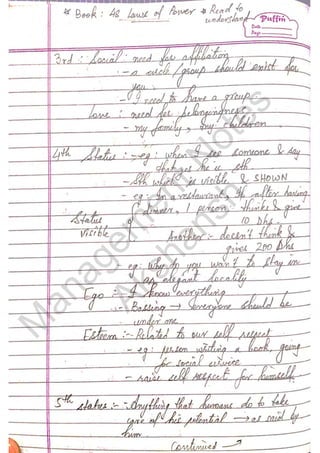 * Book: 48 Laws of Power → Read to understand
Puffin
Date
Page
3rd : Social : need for affiliation
- a circle/group should exist for you
- I need to have a group
Love : need for belongingness
- my family, my children
4th Status : - eg: when I see someone & say that yes he is sth
- Sth which is visible & SHOWN
eg: In a restaurant, Th after having dinner, 1 person thinks & give 10 Dhs.
Status visible
Another - doesn't think & gives 200 Dhs
eg: Why do you want to stay in an elegant locality
Ego :- I know everything
- Bossing - everyone should be under me
Esteem :- Related to our self respect
- eg: person writing a book, going for social service
- raise self respect for himself
5th status :- Anything that humans do to take care of his potential → as said by him
Continued →
Management Notes